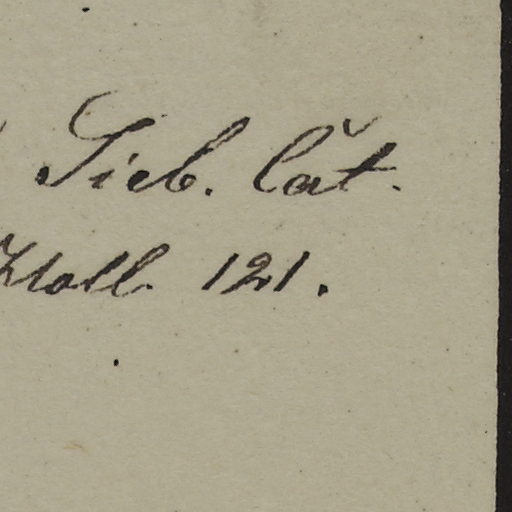 Sieb. Cat.
Holl. 121.